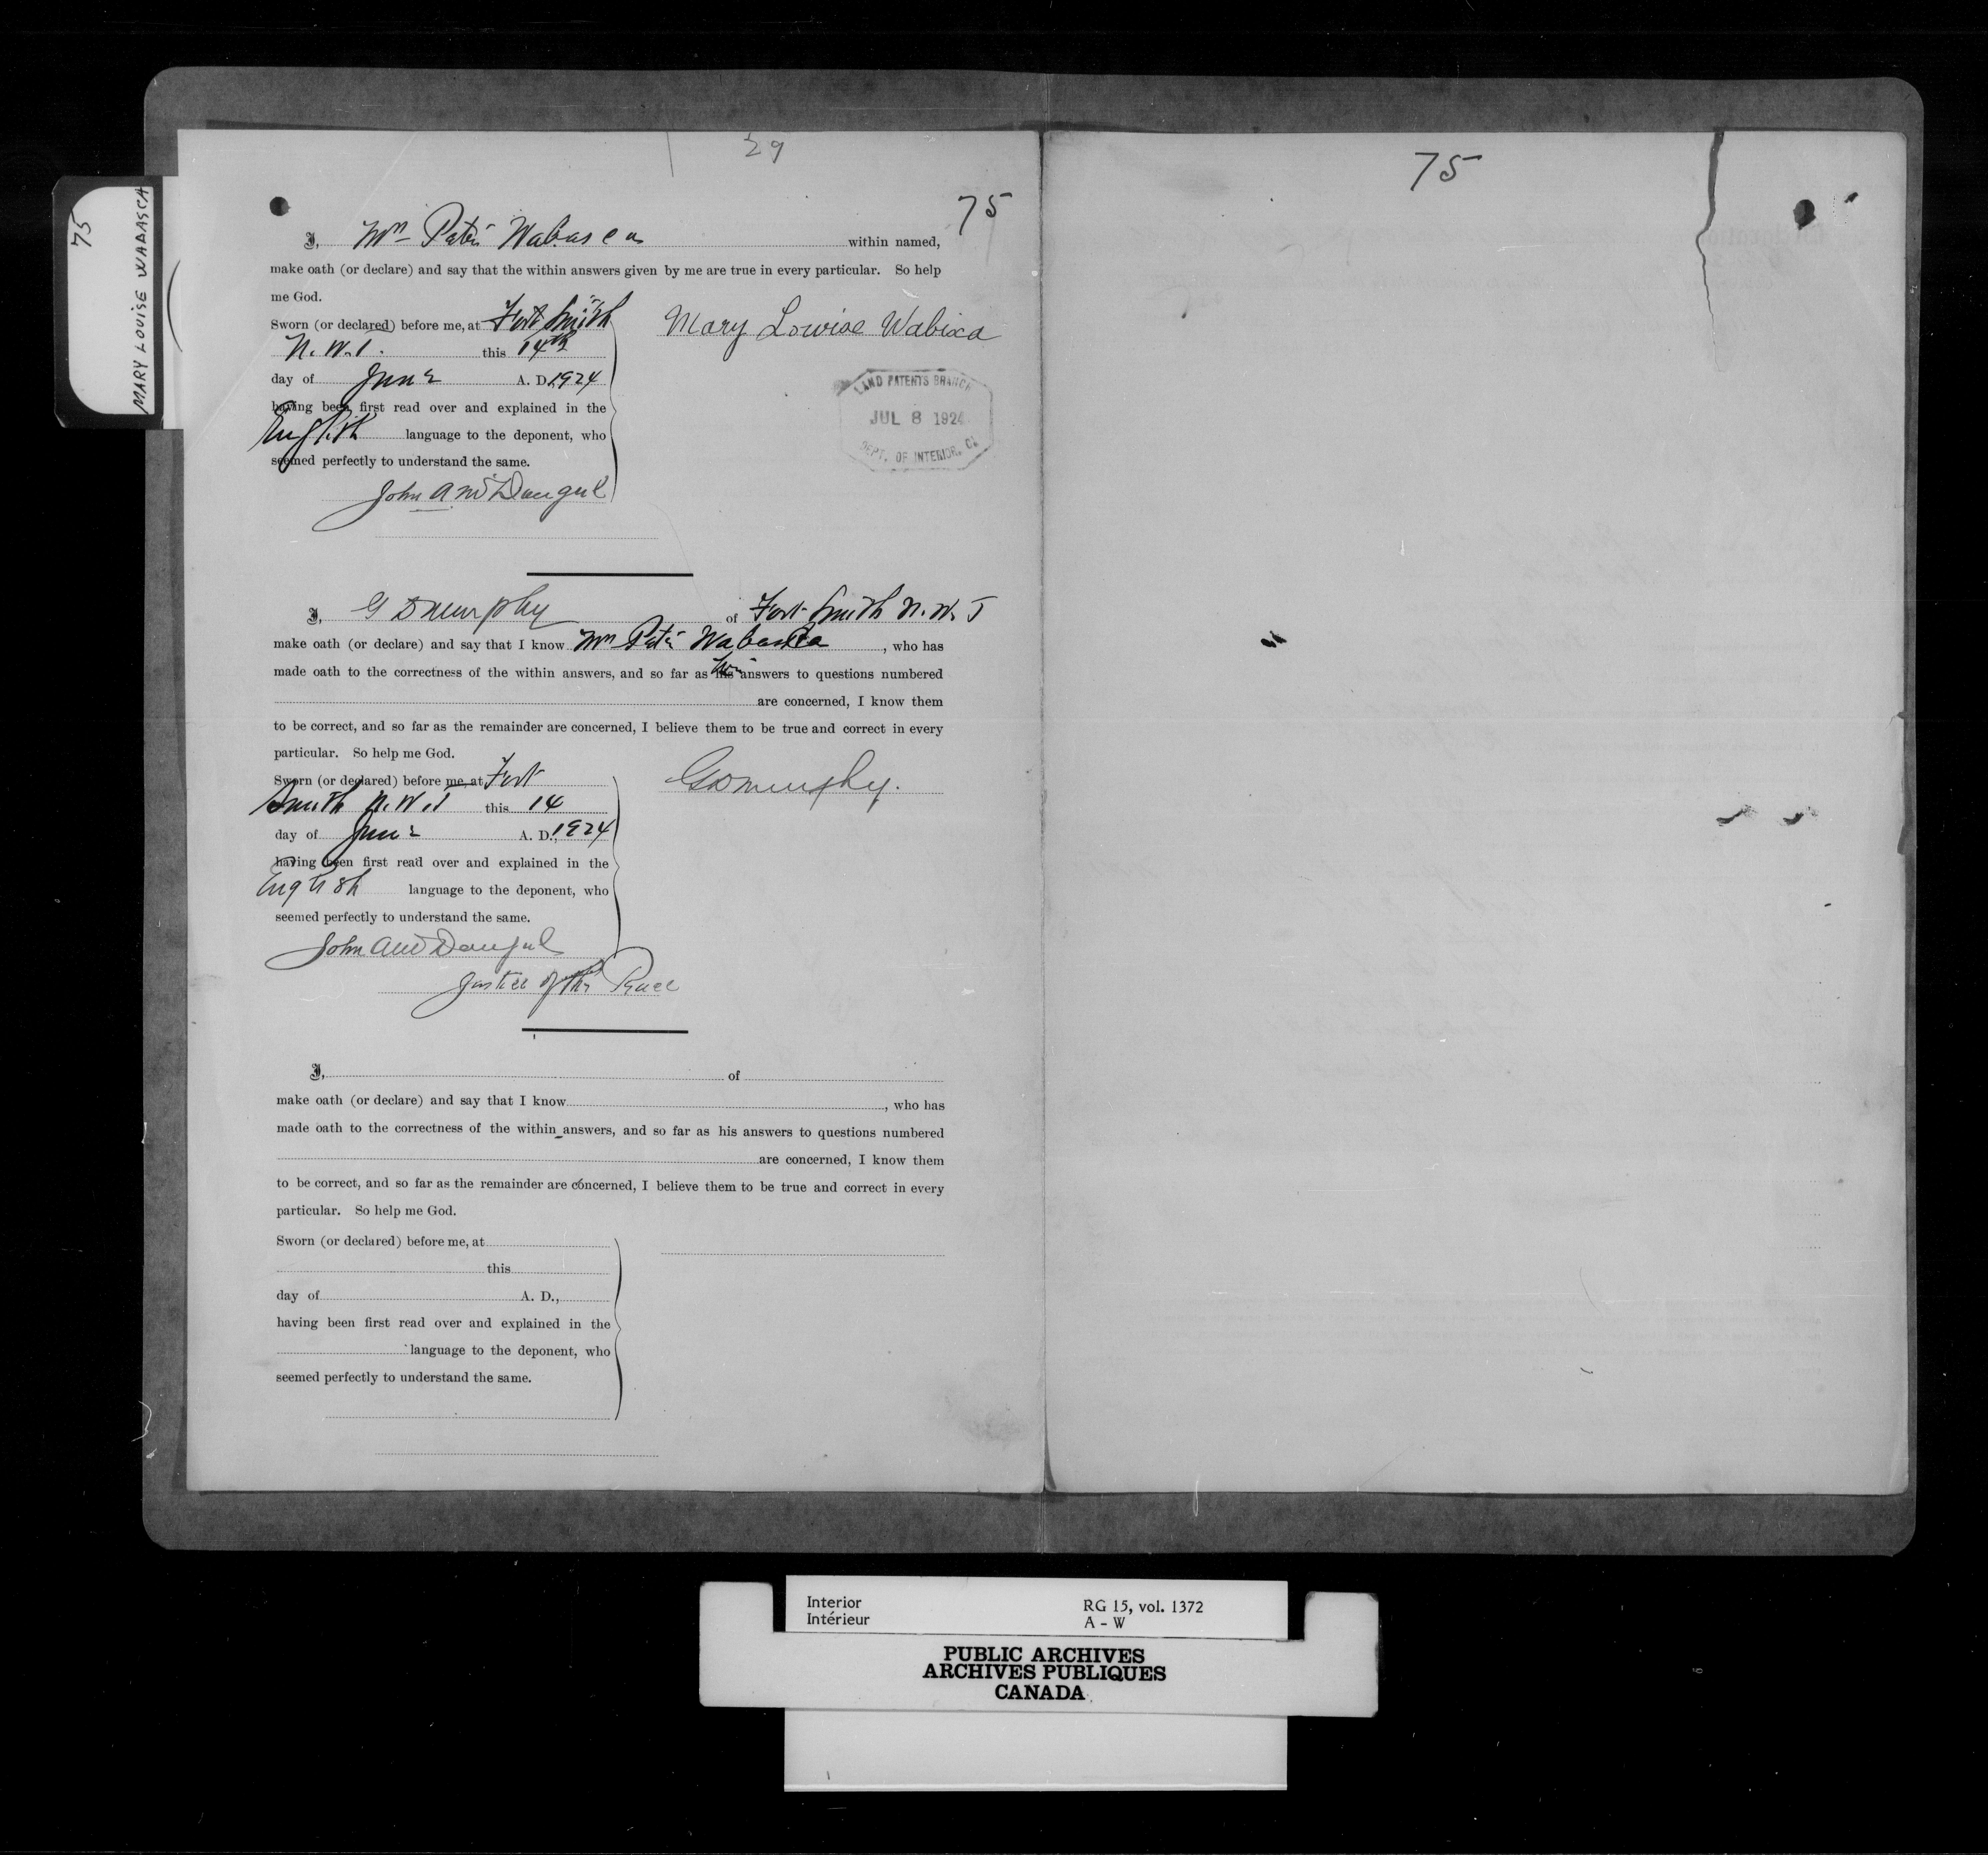 75
MARY LOUISE WABASCA
29
75
I, Mrs Patri Wabasca within named,
make oath (or declare) and say that the within answers given by me are true in every particular. So help
me God.
Sworn (or declared) before me, at Fort Smith
N.W.T. this 14th
day of June A. D. 1924
having been first read over and explained in the
English language to the deponent, who
seemed perfectly to understand the same.
John A McDougal
Mary Lowise Wabixa
LAND PATENTS BRANCH
JUL 8 1924
DEPT. OF INTERIOR,
I, G D Murphy of Fort Smith N.W.T
make oath (or declare) and say that I know Mrs Patri Wabasca, who has
made oath to the correctness of the within answers, and so far as his answers to questions numbered
are concerned, I know them
to be correct, and so far as the remainder are concerned, I believe them to be true and correct in every
particular. So help me God.
Sworn (or declared) before me, at Fort
Smith N.W.T this 14
day of June A. D., 1924
having been first read over and explained in the
English language to the deponent, who
seemed perfectly to understand the same.
John A McDougal
Justice of the Peace
G D Murphy.
I, of
make oath (or declare) and say that I know , who has
made oath to the correctness of the within answers, and so far as his answers to questions numbered
are concerned, I know them
to be correct, and so far as the remainder are concerned, I believe them to be true and correct in every
particular. So help me God.
Sworn (or declared) before me, at
this
day of A. D.,
having been first read over and explained in the
language to the deponent, who
seemed perfectly to understand the same.
75
Interior RG 15, vol. 1372
Intérieur A - W
PUBLIC ARCHIVES
ARCHIVES PUBLIQUES
CANADA